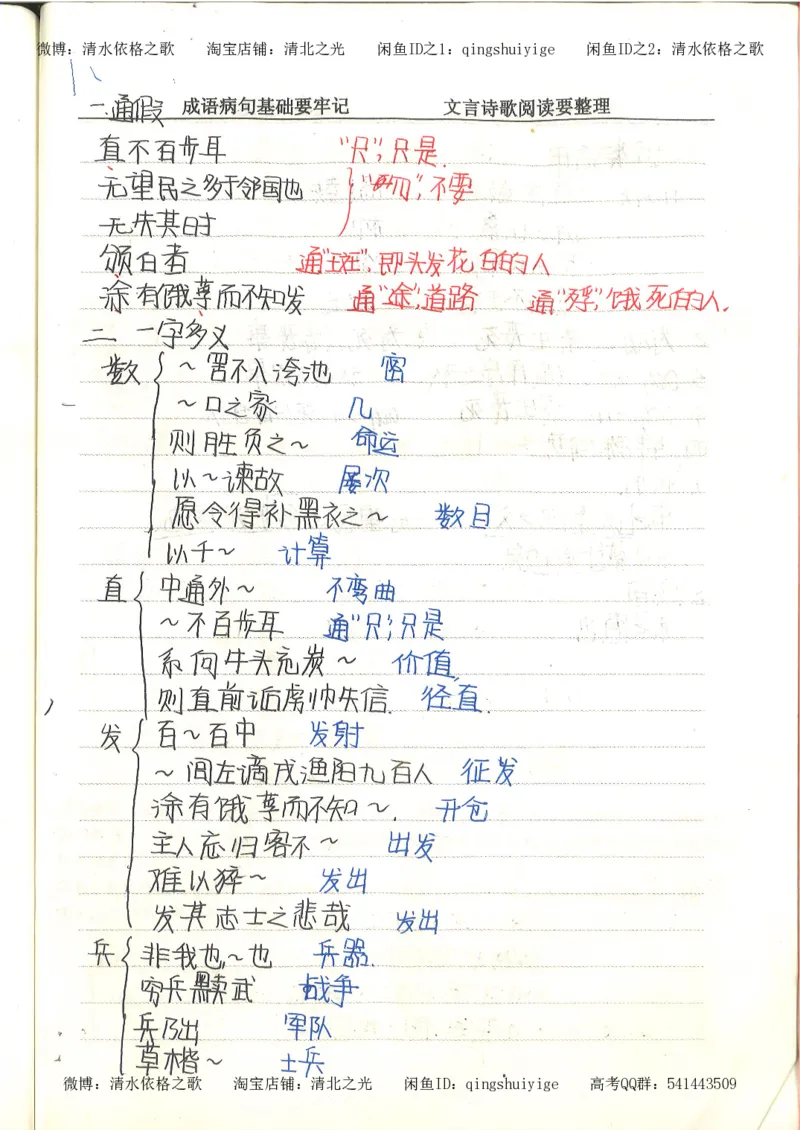 微博：清水依格之歌 淘宝店铺：清北之光 闲鱼ID之1：qingshuiyige 闲鱼ID之2：清水依格之歌
成语病句基础要牢记 文言诗歌阅读要整理
一.通假
直不百步耳 "只",只是.
无望民之多于邻国也 "毋",不要
无失其时
颁白者 通"斑",即头发花白的人
涂有饿莩而不知发 通"途",道路 通"殍",饿死的人.
二 一字多义
数 ～罟不入洿池 密
～口之家 几
则胜负之～ 命运
以～谏故 屡次
愿令得补黑衣之～ 数目
以千～ 计算
直 中通外～ 不弯曲
～不百步耳 通"只",只是
系向牛头充炭～ 价值
则直前诟虏帅失信 径直.
发 百～百中 发射
～闾左谪戍渔阳九百人 征发
涂有饿莩而不知～. 开仓
主人忘归客不～ 出发
难以猝～ 发出
发其志士之悲哉 发出
兵 非我也,～也 兵器.
穷兵黩武 战争
兵乃出 军队
草木皆～ 士兵
微博：清水依格之歌 淘宝店铺：清北之光 闲鱼ID：qingshuiyige 高考QQ群：541443509